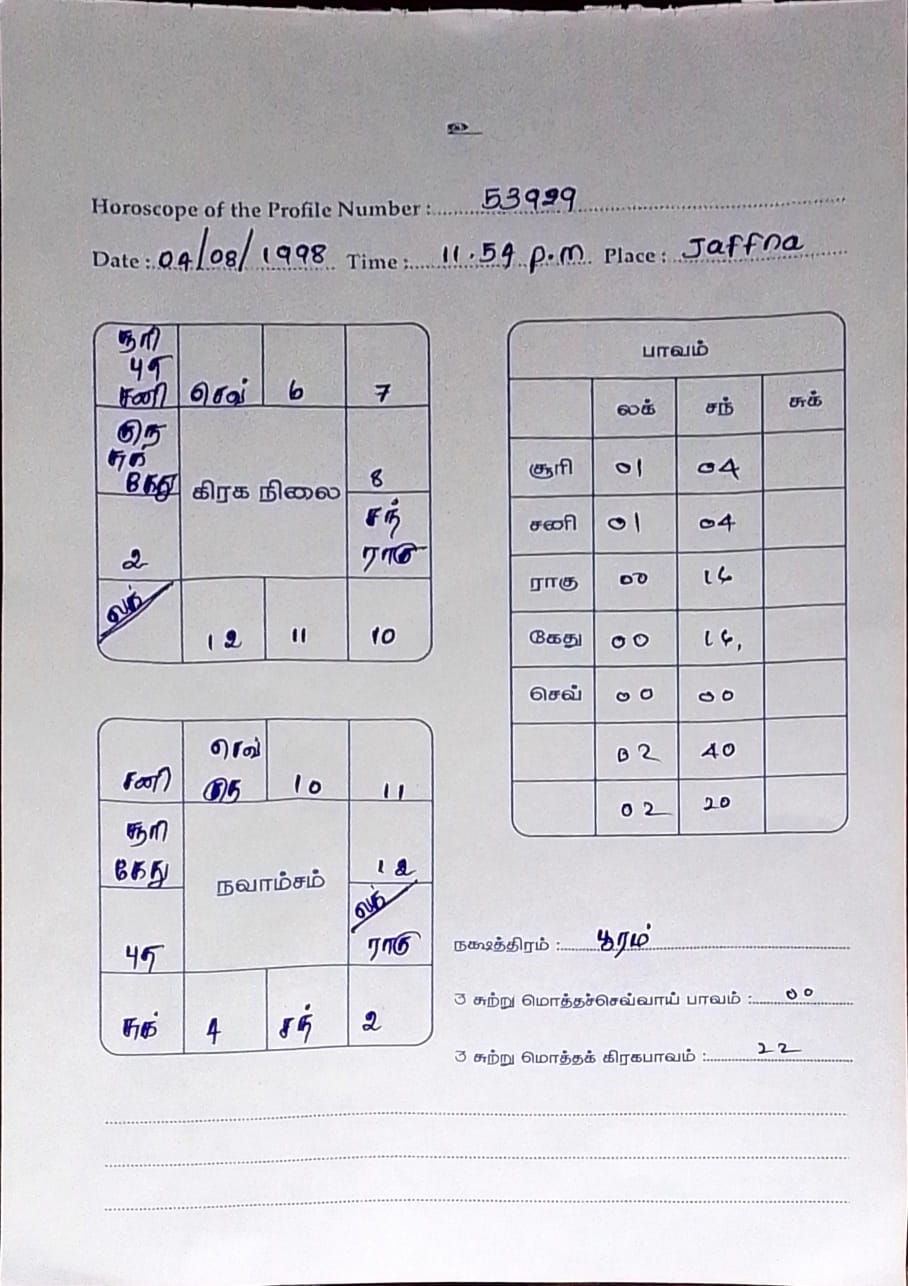 Horoscope of the Profile Number : 53999
Date : 04/08/1998 Time : 11.54 p.m Place : Jaffna
சூரி
புத
சனி செவ் 6 7
குரு
சுக்
கேது
கிரக நிலை
8
சந்
ராகு
2
லக்
12 11 10
பாவம்
லக் சந் சுக்
சூரி 01 04
சனி 01 04
ராகு 00 16
கேது 00 16,
செவ் 00 00
02 40
02 20
சனி
செவ்
குரு 10 11
சூரி
கேது
நவாம்சம்
12
லக்
ராகு
புத
சுக் 4 சந் 2
நக்ஷத்திரம் : பூரம்
3 சுற்று மொத்தச்செவ்வாய் பாவம் : 00
3 சுற்று மொத்தக் கிரகபாவம் : 22